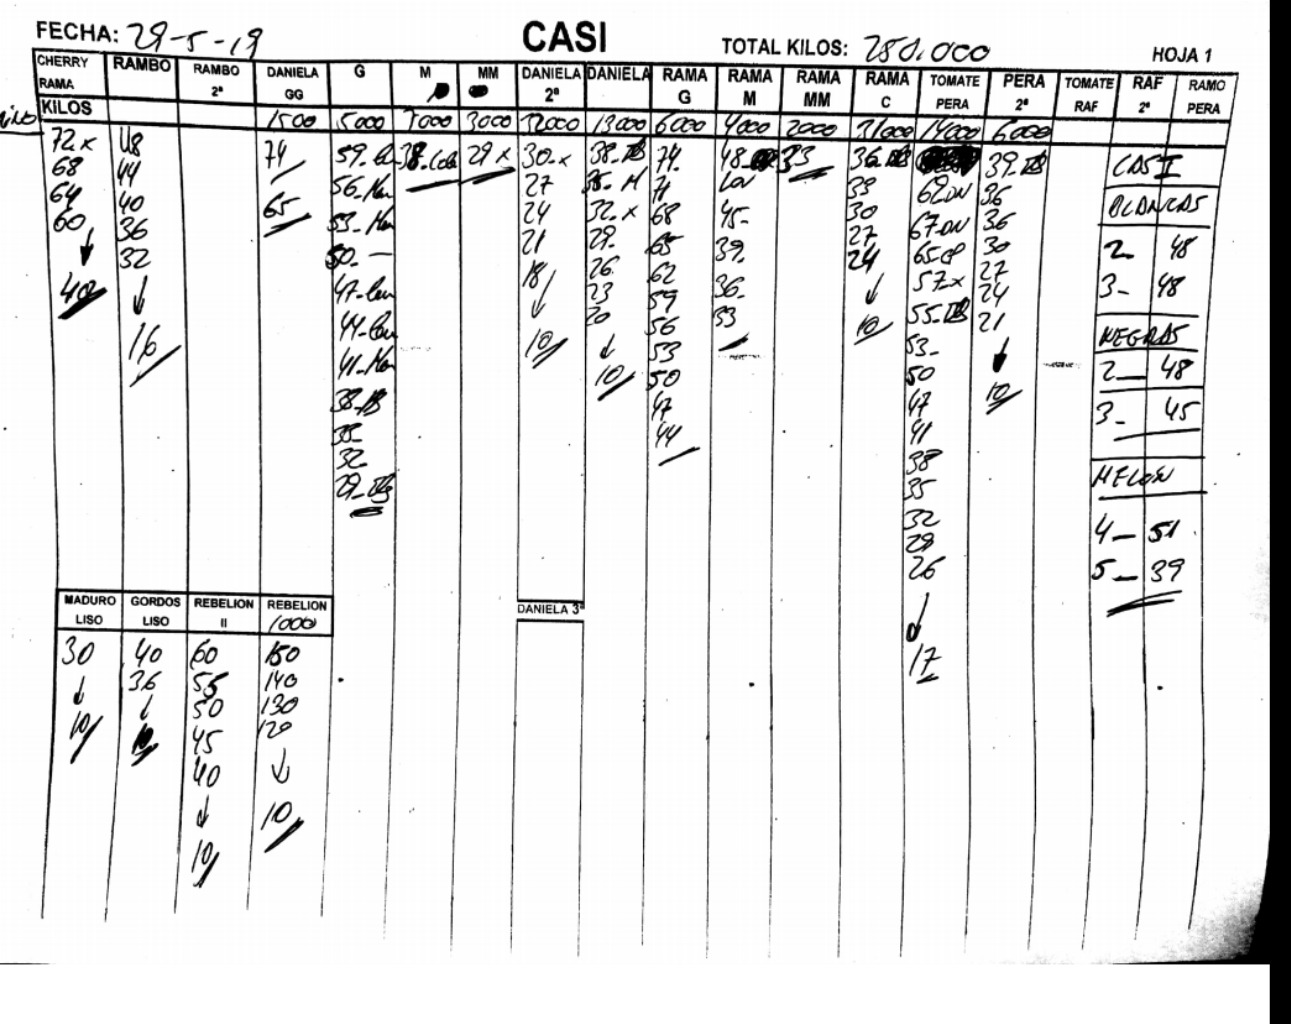 FECHA: 29-5-19 CASI TOTAL KILOS: 250.000 HOJA 1
CHERRY RAMBO RAMBO DANIELA G M MM DANIELA DANIELA RAMA RAMA RAMA RAMA TOMATE PERA TOMATE RAF RAMO
RAMA 2ª GG 2ª G M MM C PERA 2ª RAF 2ª PERA
KILOS 1500 5000 7000 3000 12000 13000 6000 4000 2000 21000 14000 6000
72 x 48 74 59 38 29 x 30-x 38 74 48 33 36 39 CASI
68 44 56 27 35-M 71 33 69 36 BLANCAS
64 40 65 53 24 32-x 68 45- 30 67 36
60 36 50 - 21 29- 65 39- 27 65 30 2- 48
32 47 18 26 62 36- 24 57-x 27 3- 48
40 44 23 59 33 55 24
16 41 10 20 56 10 53- 21 NEGRAS
38 10 53 50 10 2- 48
35- 50 47 3- 45
32 47 41
29 44 38
35 MELON
32 4- 51
29 5- 39
26
17
MADURO GORDOS REBELION REBELION DANIELA 3ª
LISO LISO II 1000
30 40 60 150
36 55 140
10 10 50 130
45 120
40
10 10